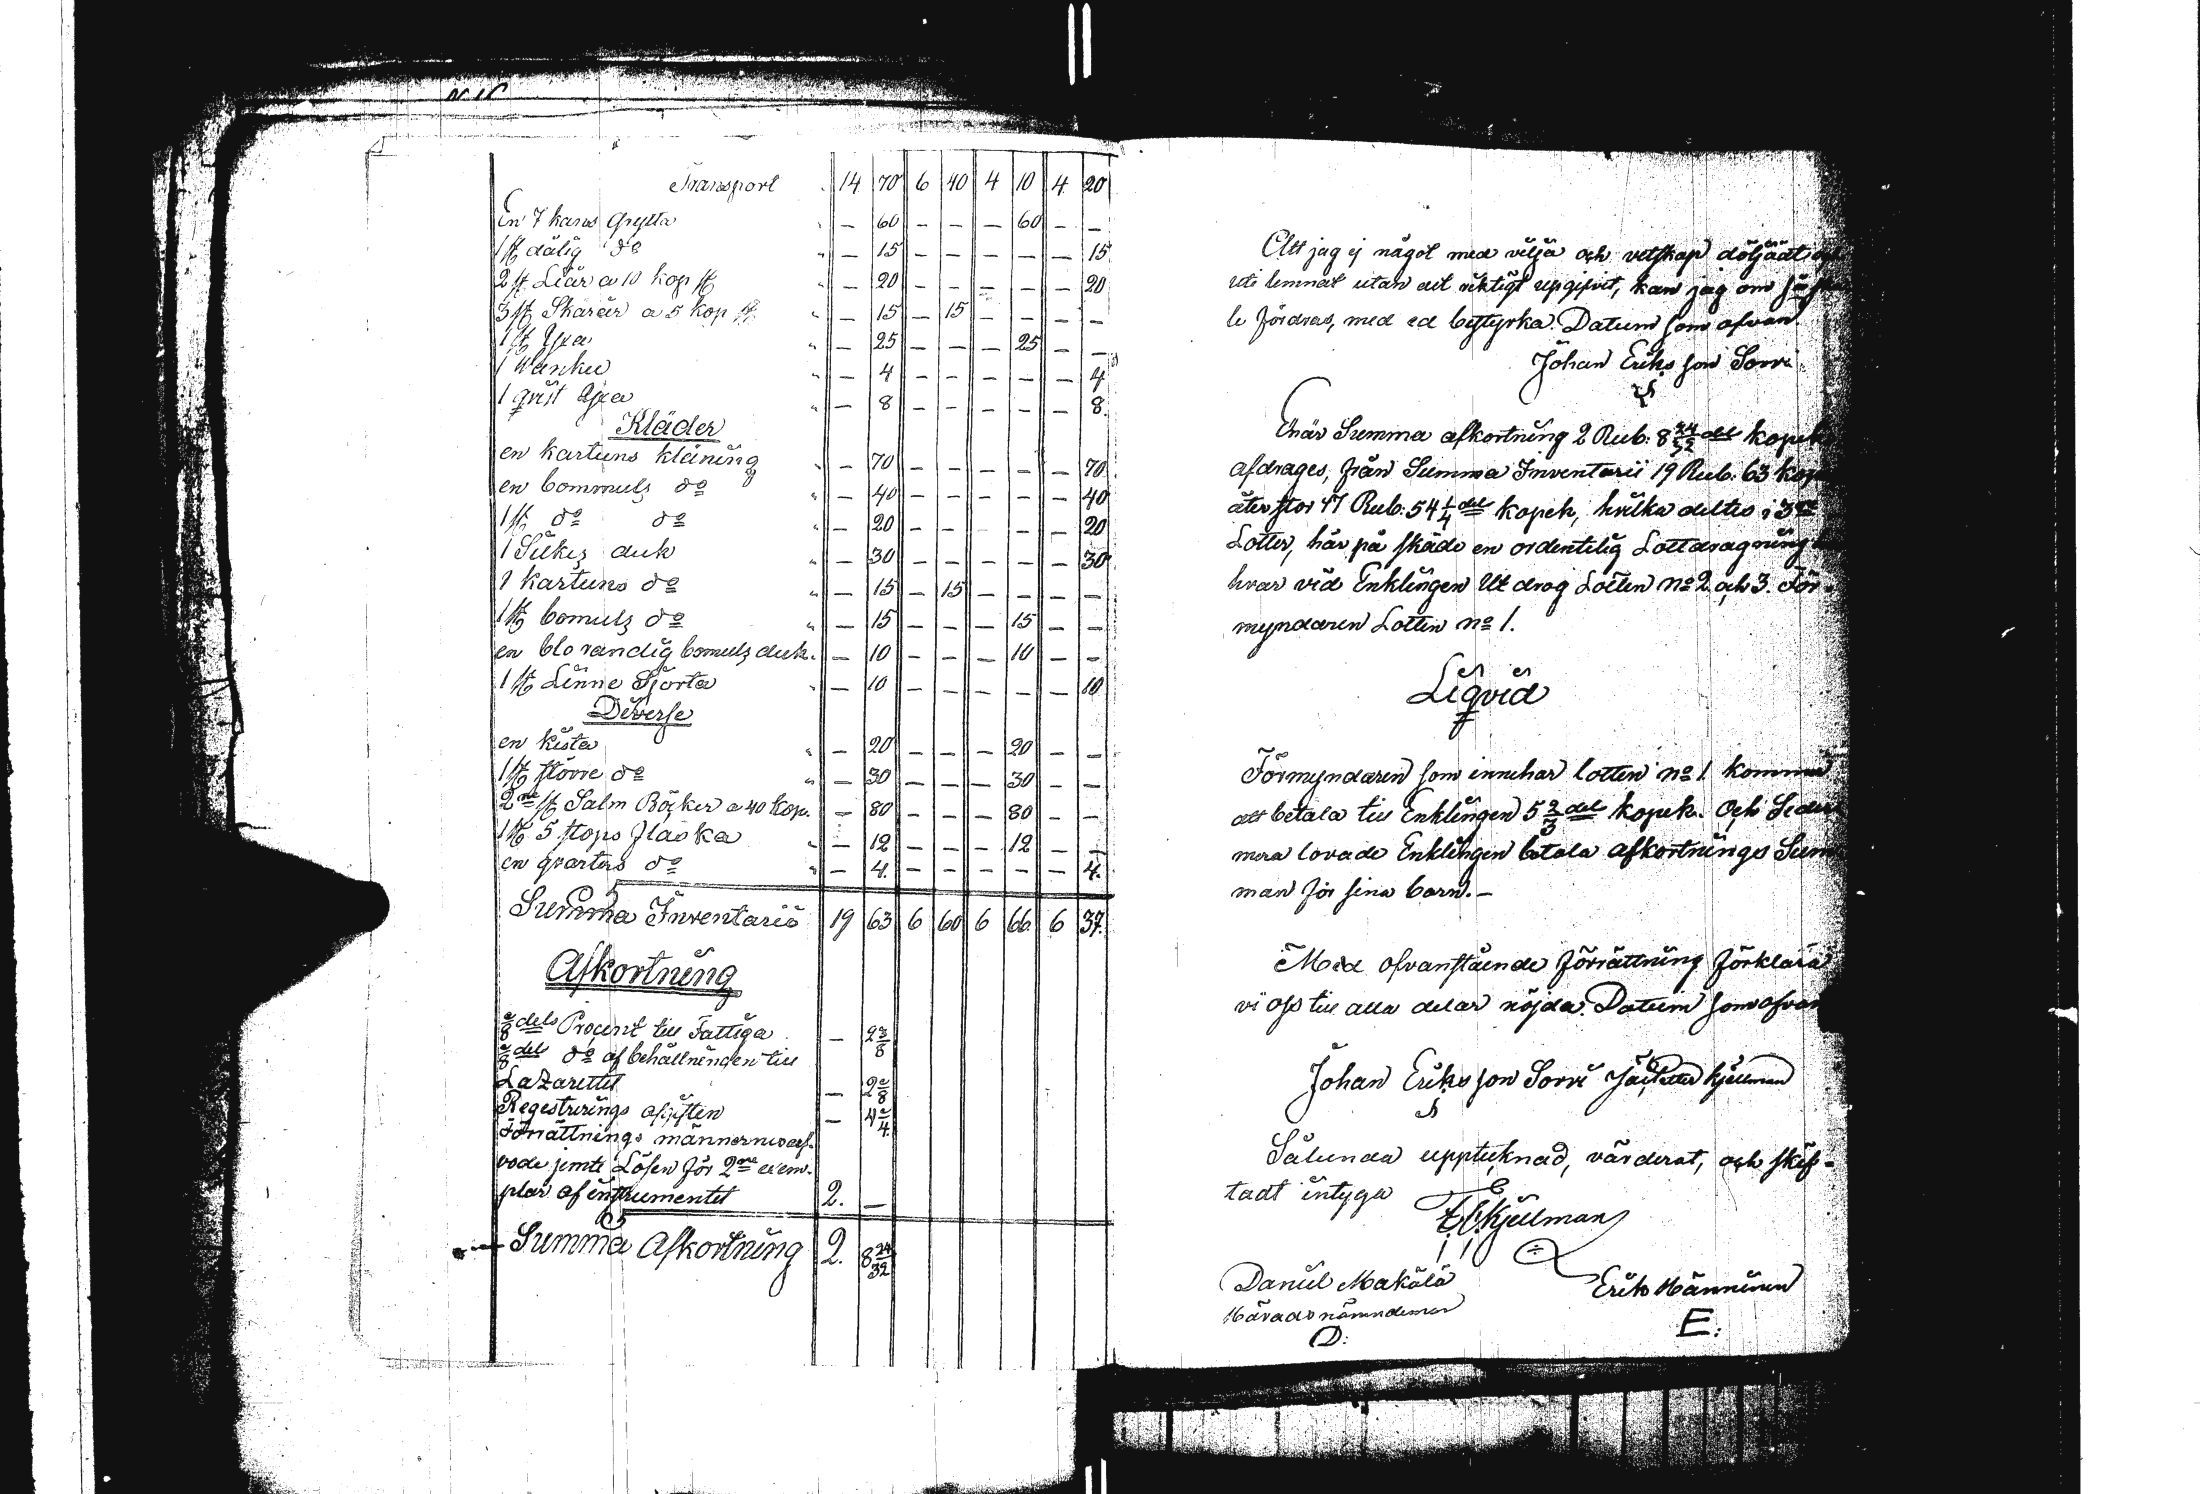 Transport 14 70 6 40 4 10 4 20
En 7 kans Grytta " — 60 — — — 60 — —
1 st dålig do " — 15 — — — — — 15
2 st Liar a 10 kop st " — 20 — — — — — 20
3 st Skäror a 5 kop st " — 15 — 15 — — — —
1 st Yxa " — 25 — — — 25 — —
1 " — 4 — — — — — 4
1 qvist Yxa " — 8 — — — — — 8.
Kläder
en kartuns kläning " — 70 — — — — — 70
en bommuls do " — 40 — — — — — 40
1 st do do " — 20 — — — — — 20
1 Silkes duk " — 30 — — — — — 30
1 kartuns do " — 15 — 15 — — — —
1 st bomuls do " — 15 — — — 15 — —
en blo randig bomuls duk. — 10 — — — 10 — —
1 st Linne Sjorta " — 10 — — — — — 10
Diverse
en kista " — 20 — — — 20 — —
1 st större do " — 30 — — — 30 — —
2ne st Salm Böcker a 40 kop. — 80 — — — 80 — —
1 st 5 stops flaska " — 12 — — — 12 — —
en qvarters do " — 4. — — — — — 4.
Summa Inventarie 19 63 6 60 6 66 6 37.
Afkortning
dels Procent till Fattiga — 2 3/8
del do af behållningen till
Lazarettet —
Regestrerings afgiften —
Förrättnings männernes arf-
vode jemte Lösen för 2ne exem-
plar af instrumentet 2. —
Summa Afkortning 2. 8 24/32
Att jag ej något med vilja och vetskap döljadt
uti lemnat utan alt riktigt uppgifvit, kan jag om så
le fordras, med ed bestyrka. Datum som ofvan.
Johan Eriks son Sorvi
Enär Summa afkortning 2 Rub: 8 24/32 del kopek
afdrages, från Summa Inventarii 19 Rub: 63 Kop
återstor 17 Rub: 54 1/4 del kopek, hvilka deltes i 3ne
Lotter, här på skäde en ordentelig Lottdragning
hvar vid Enklingen Ut drog Lotten No 2 och 3. För-
myndaren Lotten No 1.
Liqvid
Förmyndaren som innehar lotten No 1 kommer
att betala till Enklingen 5 2/3 del kopek. Och Seder
mera lovade Enklingen betala afkortnings Sum
man för sina barn. —
Med ofvanstående förrättning förklara
vi oss till alla delar nöjda. Datum som ofvan
Johan Eriks son Sorvi Kjellman
Sålunda uppteknad, värderat, och skif-
tadt intyga
Kjellman
Daniel Makälä Erik Männinen
Häradsnämndeman E:
D: